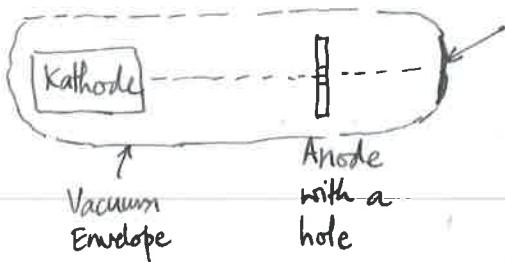 Kathode
Vacuum
Envelope
Anode
with a
hole